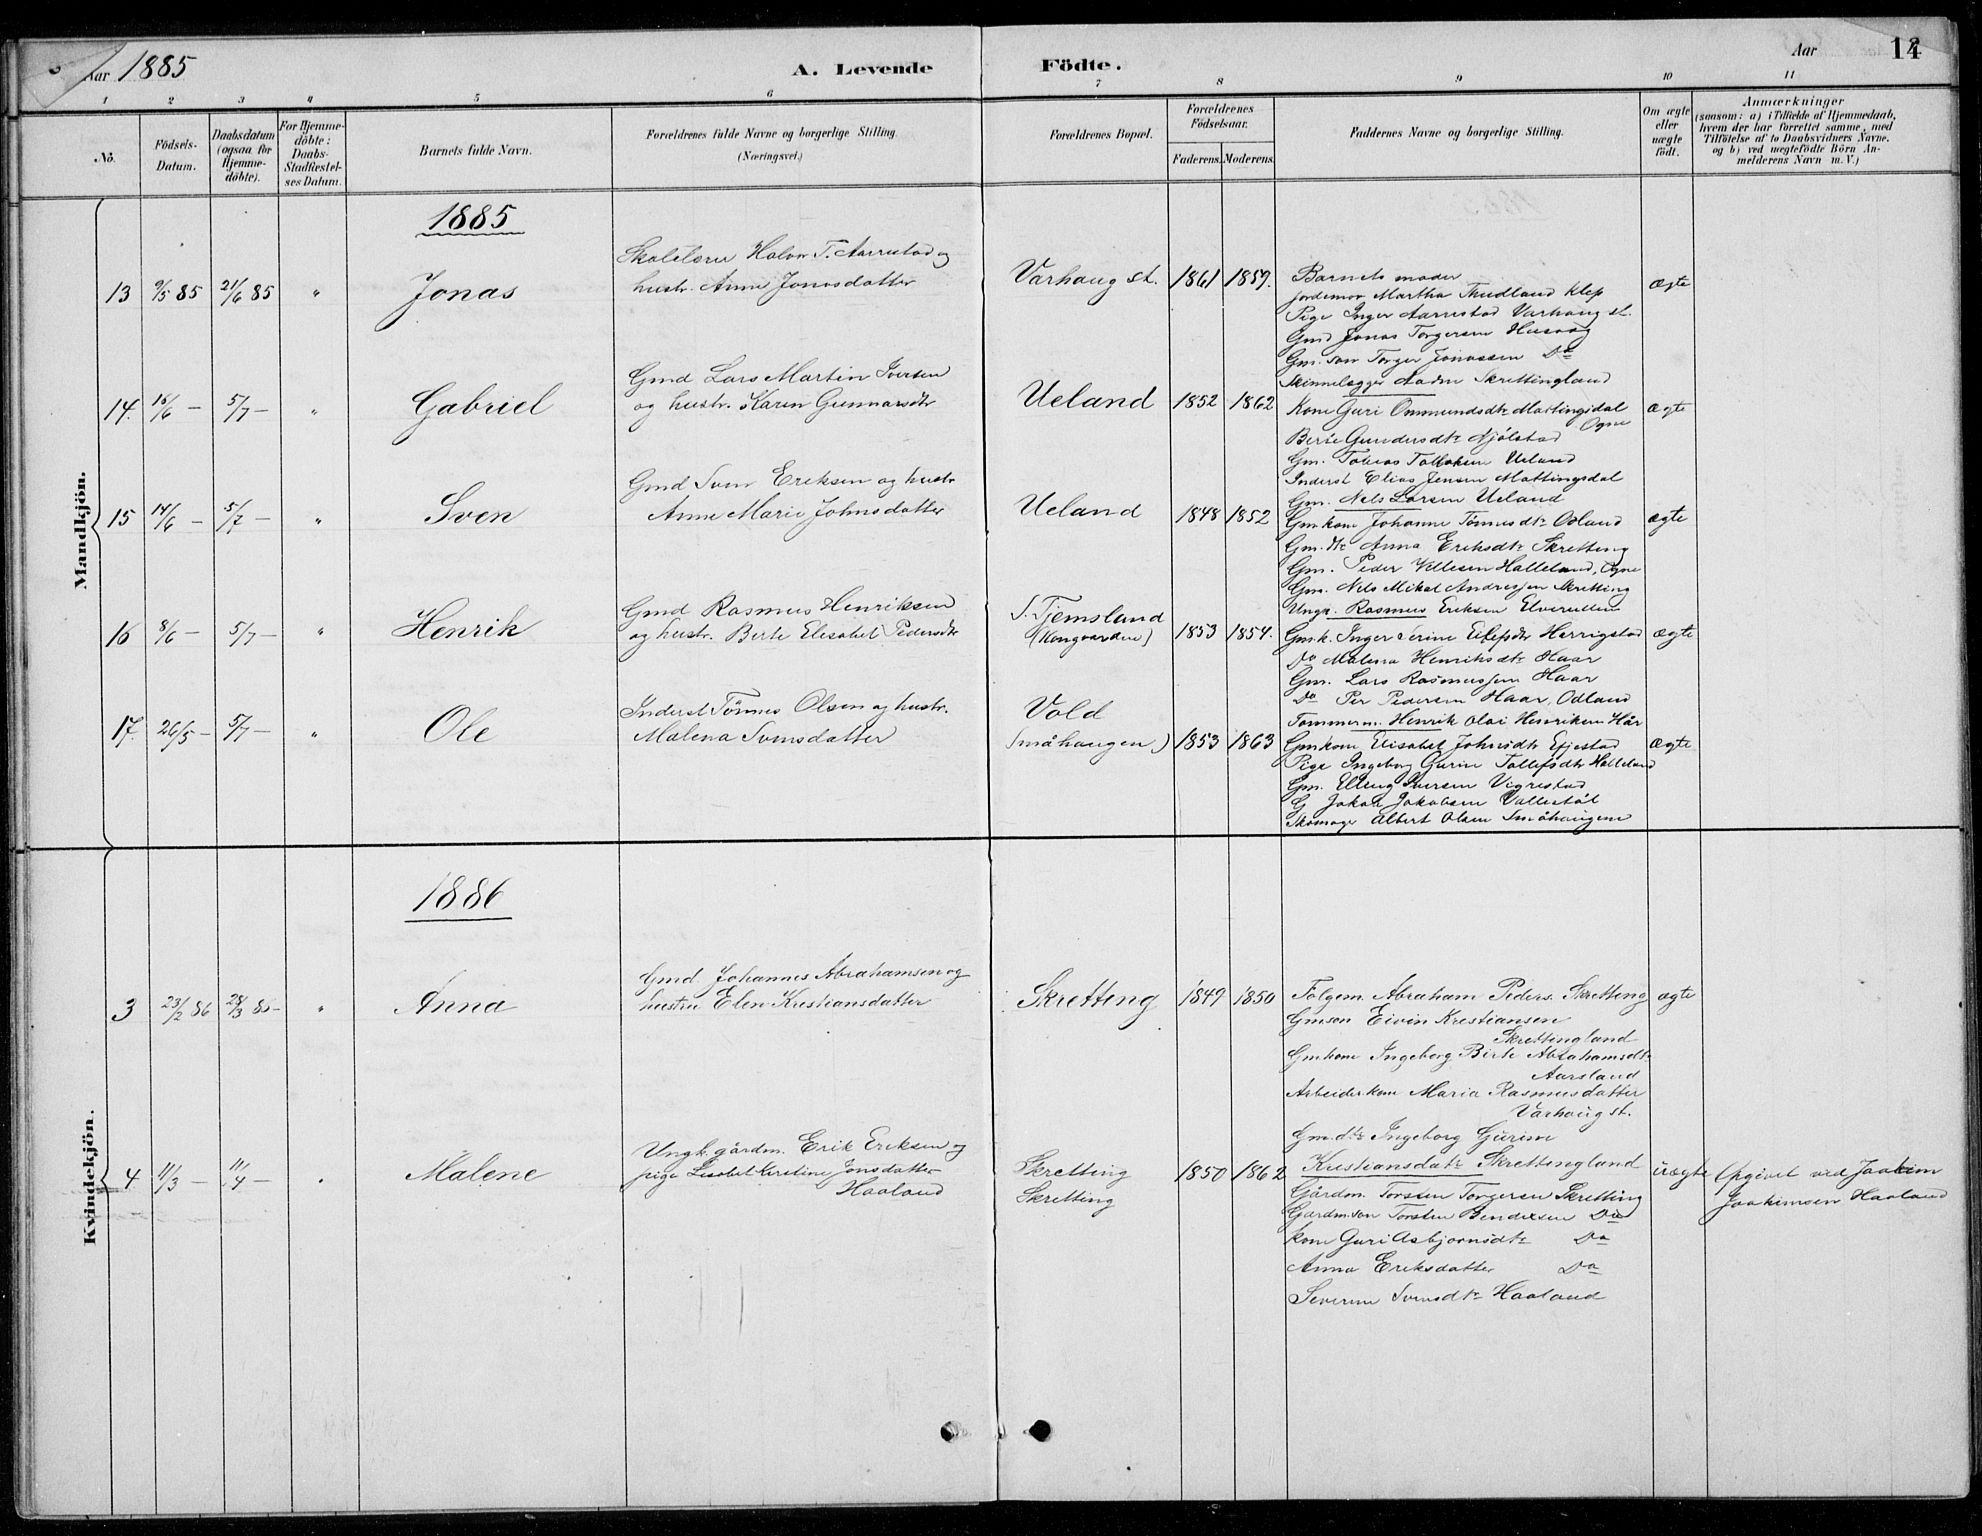 Aar 1885
A. Levende Födte.
Aar
14
1 2 3 4 5 6 7 8 9 10 11
No.
Födsels-Datum.
Daabsdatum (ogsaa for Hjemme-döbte).
For Hjemme-döbte: Daabs-Stadfæstel-ses Datum.
Barnets fulde Navn.
Forældrenes fulde Navne og borgerlige Stilling.
(Næringsvei.)
Forældrenes Bopæl.
Forældrenes Födselsaar.
Faderens. Moderens.
Faddernes Navne og borgerlige Stilling.
Om ægte eller uægte födt.
Anmærkninger
(saasom: a) i Tilfælde af Hjemmedaab, hvem der har forrettet samme, med Tilföielse af to Daabsvidners Navne. og b) ved uægtefödte Börn An-melderens Navn m. V.)
Mandkjön.
1885
13 9/5 85 21/6 85 " Jonas
Skolelærer Halvor T. Aarrestad og
hustr. Anne Jonasdatter
Varhaug st. 1861 1859.
Barnets moder
Jordemor Martha Thudland Klep
Pige Inger Aarrestad Varhaug st.
Gmd Jonas Torgersen Husvåg
Gm. søn Torger Jonassen Do
ægte
14. 16/6 – 5/7 – " Gabriel
Gmd Lars Martin Iversen
og hustr. Karen Gunnarsdtr
Ueland 1852 1862
Skinnelægger Aadne Skrettingland
Kone Guri Ommundsdtr Mattingsdal
Ogne
Berte Gundersdtr Njölstad
Gm. Tobias Tollaksen Ueland
Inderst Elias Jensen Mattingsdal
ægte
15 14/6 – 5/7 – " Sven
Gmd Sven Eriksen og hustr
Anne Marie Johnsdatter
Ueland 1848 1852
Gm. Nels Larsen Ueland
Gmkone Johanne Tönnesdtr Odland
Gm. dtr Anna Eriksdtr Skretting
Gm. Peder Villesen Halleland, Ogne
Gm. Nils Mikal Andreassen Skretting
ægte
16 8/6 – 5/7 – " Henrik
Gmd Rasmus Henriksen
og hustr. Berte Elisabet Pedersdtr
S. Tjemsland
1853 1854.
Ungk. Rasmus Eriksen
Gmk. Inger Serine Eilefsdtr Herrigstad
Do Malena Henriksdtr Haar
Gm. Lars Rasmussen Haar
Do Per Pedersen Haar, Odland
ægte
17 26/5 – 5/7 – " Ole
Inderst Tönnes Olsen og hustr.
Malena Svensdatter
Vold
Småhaugen) 1853 1863
Tømmerm. Henrik Olai Henriksen Hår
Gmkone Elisabet Johnsdtr Efjestad
Pige Ingeborg Gurine Tollefsdtr Halleland
Gm. Elling Iversen Vigrestad
G Jakob Jakobsen Vollestöl
Skomager Albert Olsen Småhaugene
ægte
Kvindekjön.
1886
3 23/2 86 28/3 86 – " Anna
Gmd. Johannes Abrahamsen og
hustru Elen Kristiansdatter
Skretting 1849 1850
Følgem. Abraham Peders. Skretting
Gmson Eivin Krestiansen
Skrettingland
Gmkone Ingeborg Birte Abrahamsdtr
Aarsland
Arbeiderkone Maria Rasmusdatter
Varhaug st.
Gm. dtr Ingeborg Gurine
Kristiansdatr Skrettingland
ægte
4 11/3 – 11/4 – " Malene
Ungk. gårdm. Erik Eriksen og
pige Lisabet Kerstine Jonsdatter
Haaland
Skretting
Skretting
1850 1862
Gårdm. Torsten Torgersen Skretting
Gårdm.søn Torsten Bendixen Do
Kone Guri Asbjørnsdtr Do
Anna Eriksdatter Do
Severine Svensdtr Haaland
uægte
Opgivet ved Joakim
Joakimsen Haaland